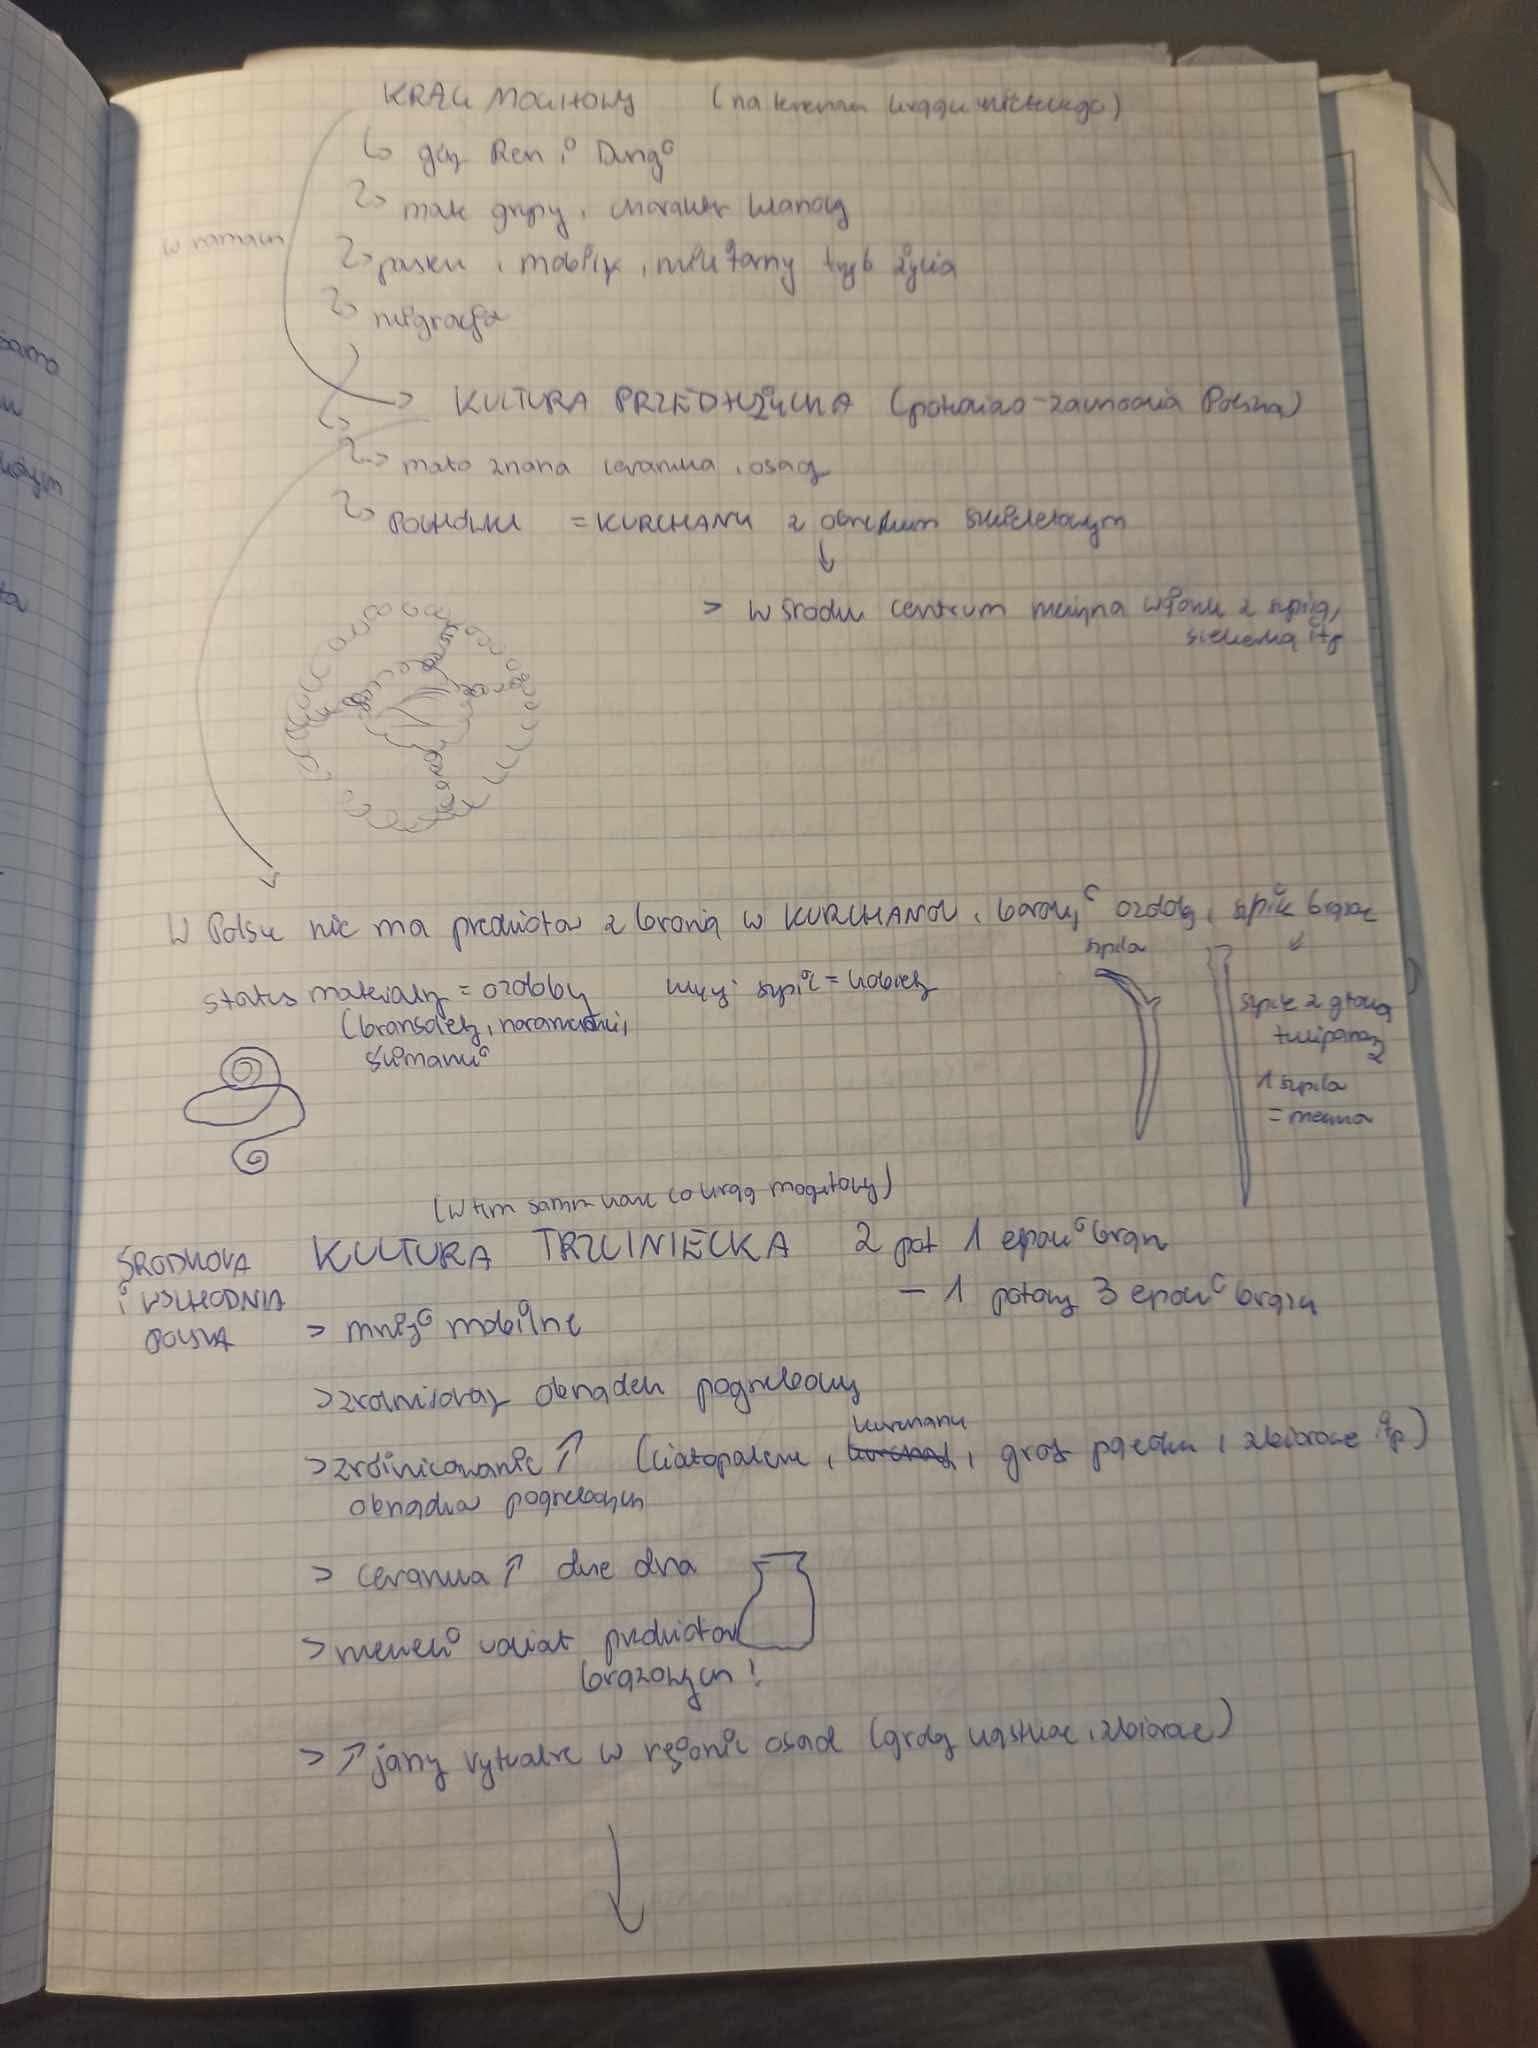 KRĄG MOGIŁOWY (na terenan kręgu unietyckiego)
górny Ren i Dunaj
małe grupy, charakter klanowy
pasterski, mobilny, militarny tryb życia
w ramach
migracja
KULTURA PRZEDŁUŻYCKA (południowo-zachodnia Polska)
mało znana ceramika, osady
POCHÓWKI = KURHANY z obrządkiem szkieletowym
> w środku centrum mężczyzna włócznia z szpilą,
siekierką itp
W Polsce nie ma przedmiotów z bronią w KURCHANOU, bardziej ozdoby, szpile brązowe
szpila
status materialny = ozdoby więcej szpil = kobiety
(bransolety, naramienniki,
szpile z głową
tulipanową
1 szpila
= męska
(w tym samym czasie co krąg mogiłowy)
ŚRODKOWA
i WSCHODNIA
POLSKA
KULTURA TRZCINIECKA 2 poł 1 epoki brązu
– 1 połowy 3 epoki brązu
> mniej mobilne
> zróżnicowany obrządek pogrzebowy
> zróżnicowanie ↑ (ciałopalne, kurhany, groby pojedyncze, zbiorowe itp)
obrządku pogrzebowych
> ceramika ↑ duże dna
> mniejszy udział przedmiotów
brązowych!
> ↑ jamy rytualne w rejonie osad (groby kąstkowe, zbiorowe)